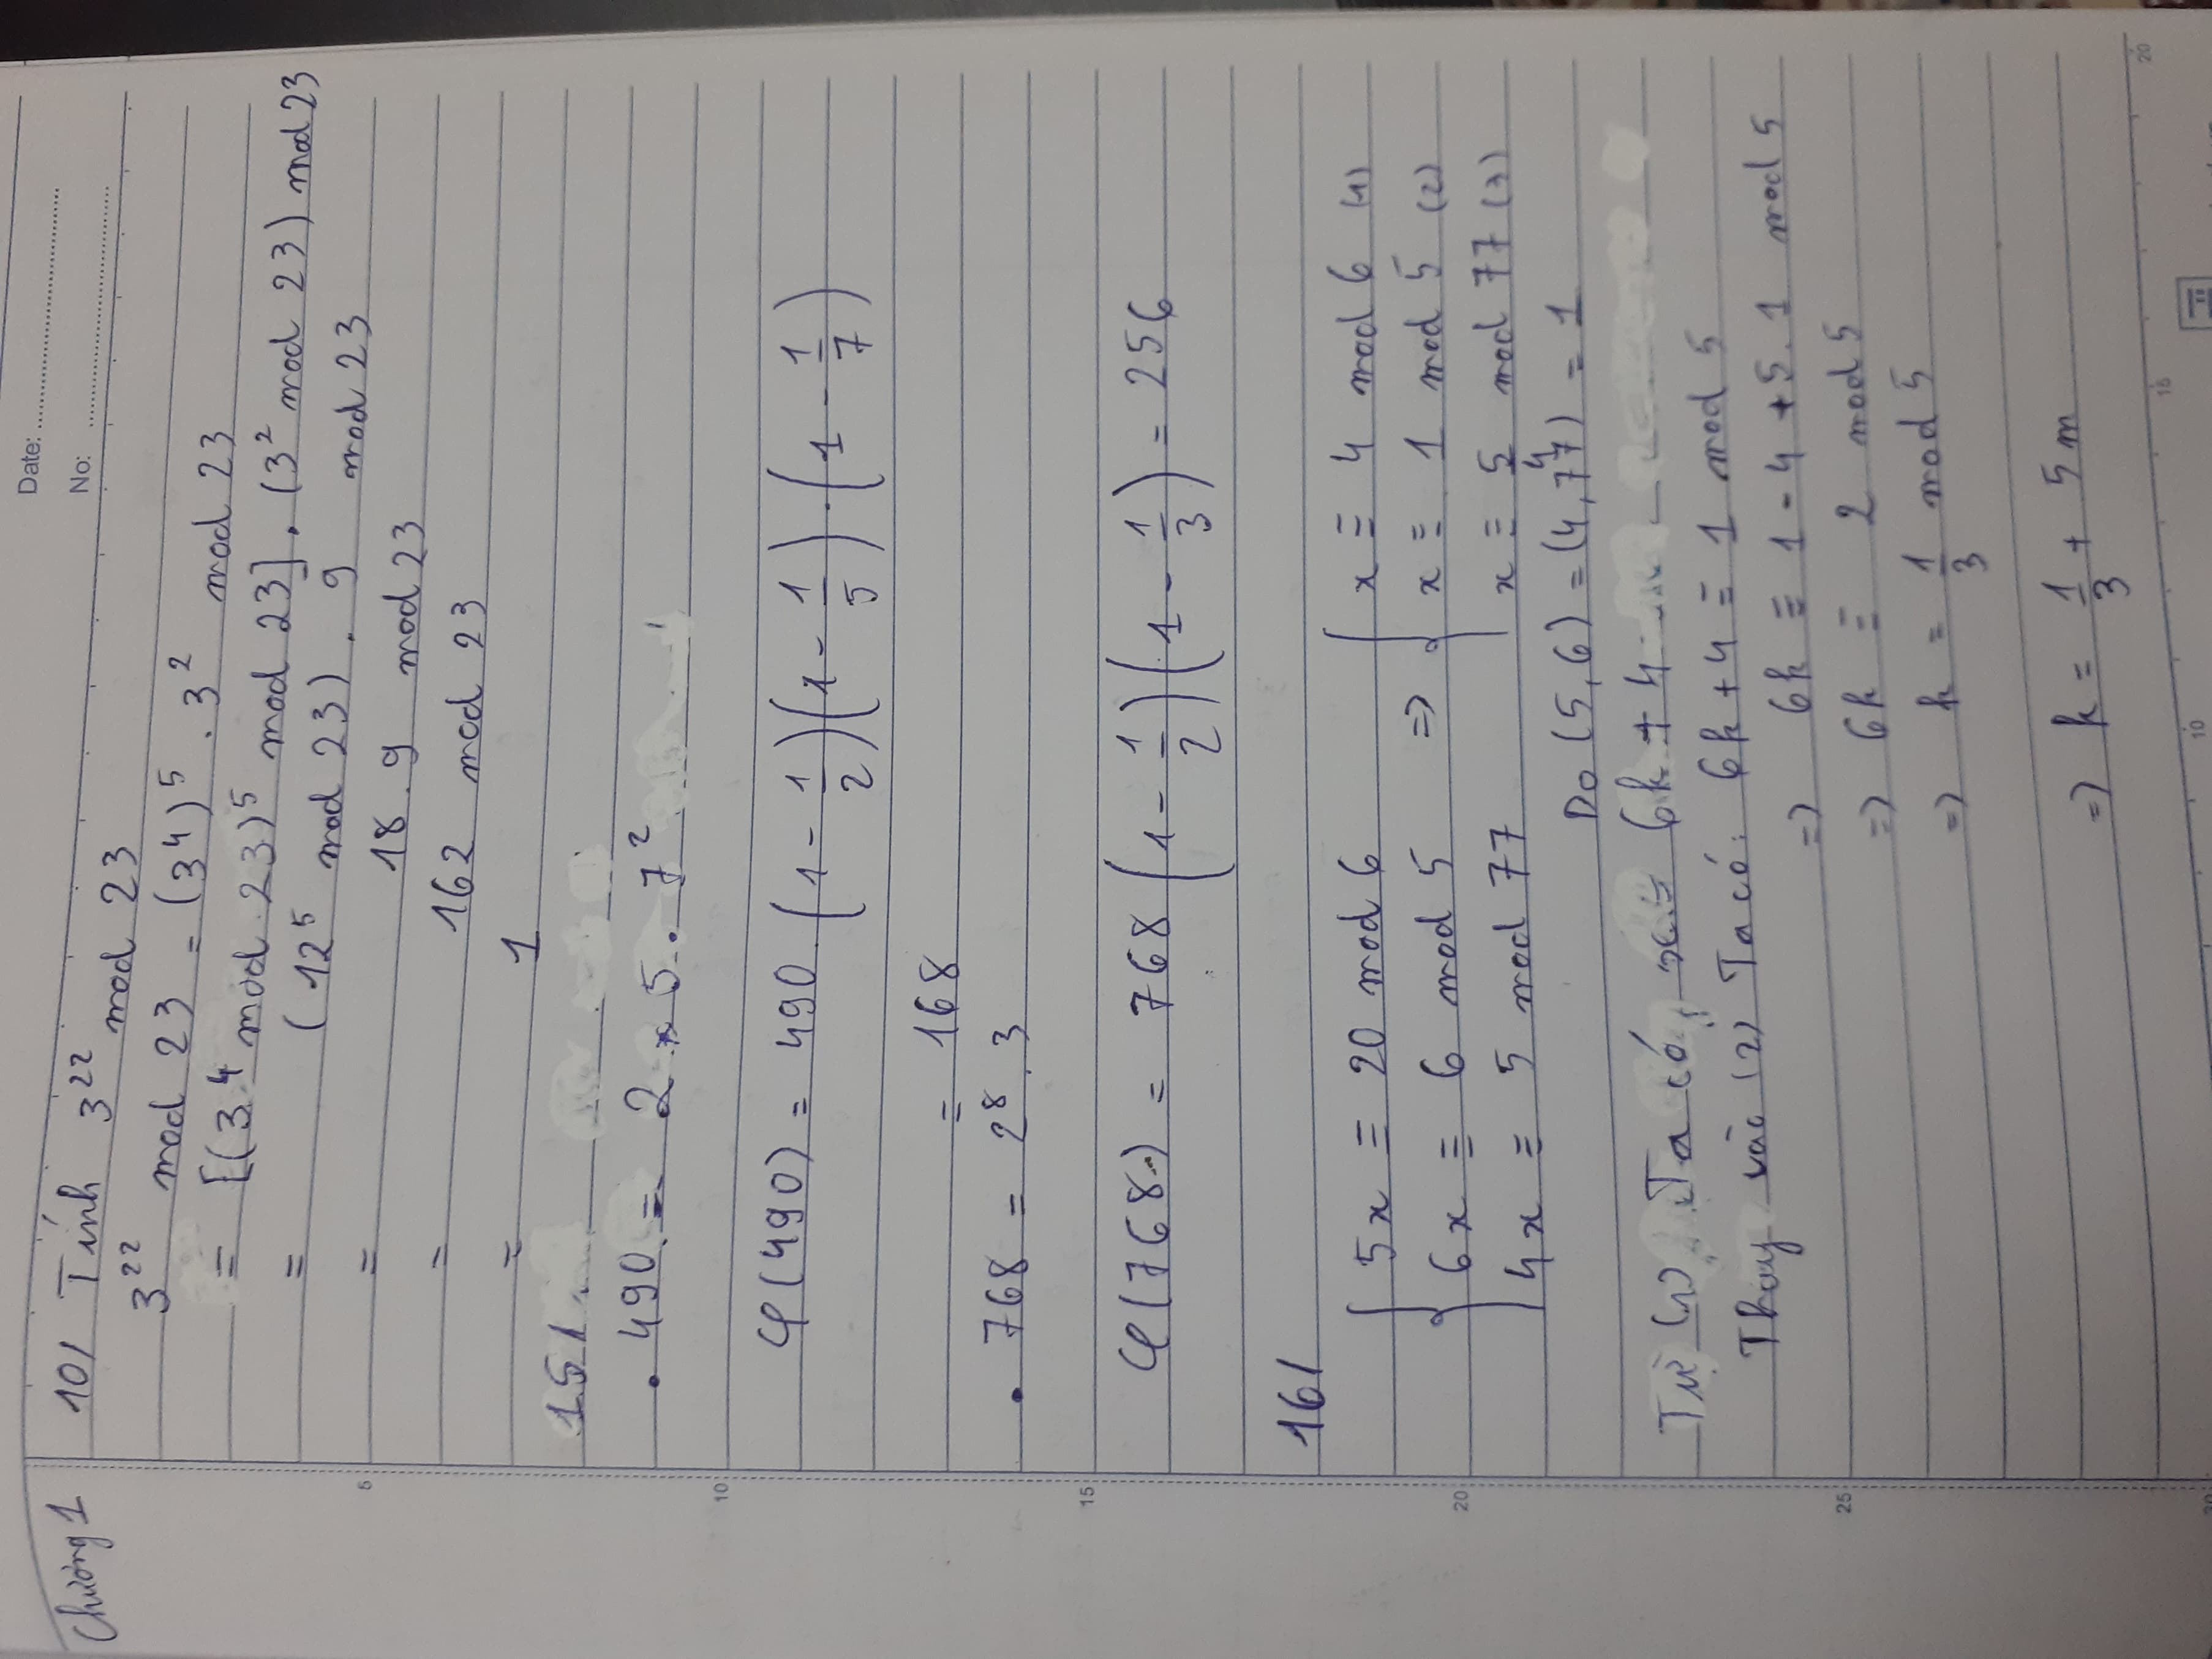 Date:
No:
Chương 1
10/ Tính 3²² mod 23
3²² mod 23 = (3⁴)⁵ . 3² mod 23
= [(3⁴ mod 23)⁵ mod 23] . (3² mod 23) mod 23
= (12⁵ mod 23) . 9 mod 23
= 18 . 9 mod 23
= 162 mod 23
= 1
15/
• 490 = 2 × 5 . 7²
φ(490) = 490 (1 - 1/2)(1 - 1/5) . (1 - 1/7)
= 168
• 768 = 2⁸ . 3
φ(768) = 768 (1 - 1/2)(1 - 1/3) = 256
16/
{ 5x ≡ 20 mod 6 => { x ≡ 4 mod 6 (1)
6x ≡ 6 mod 5 x ≡ 1 mod 5 (2)
4x ≡ 5 mod 77 x ≡ 5/4 mod 77 (3)
Do (5,6) = (4,77) = 1
Từ (1) Ta có, x = 6k + 4
Thay vào (2) Ta có: 6k + 4 ≡ 1 mod 5
=> 6k ≡ 1 - 4 + 5.1 mod 5
=> 6k ≡ 2 mod 5
=> k = 1/3 mod 5
=> k = 1/3 + 5m
5
10
15
20
25
30
10
15
20